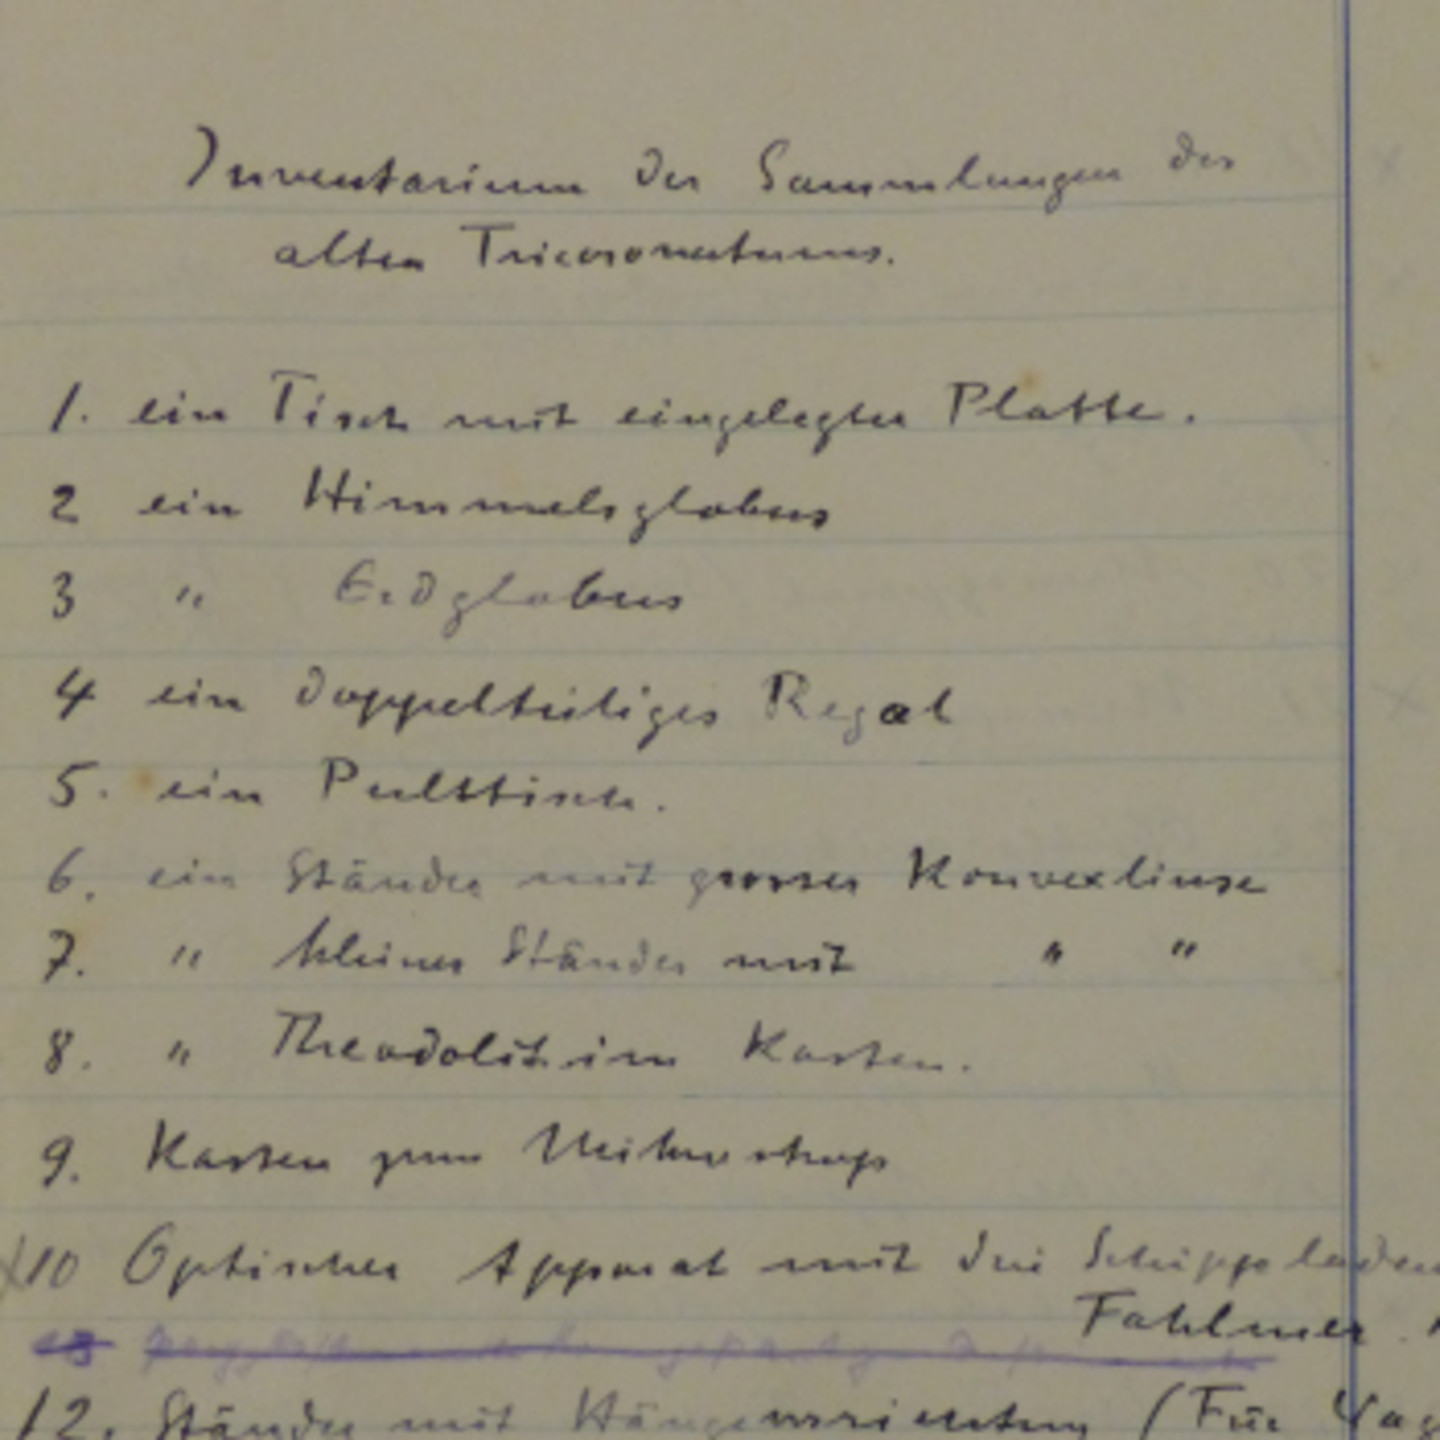 Inventarium der Sammlungen des
alten Tricoronatums.
1. ein Tisch mit eingelegter Platte.
2 ein Himmelsglobus
3 " Erdglobus
4 ein doppelteiliges Regal
5. ein Pulttisch.
6. ein Ständer mit grosser Konvexlinse
7. " kleiner Ständer mit " "
8. " Theodolit im Kasten.
9. Kasten zum Mikroskop
10 Optischer Apparat mit drei Schippladen
Fahlmer.
12. Ständer mit (Für